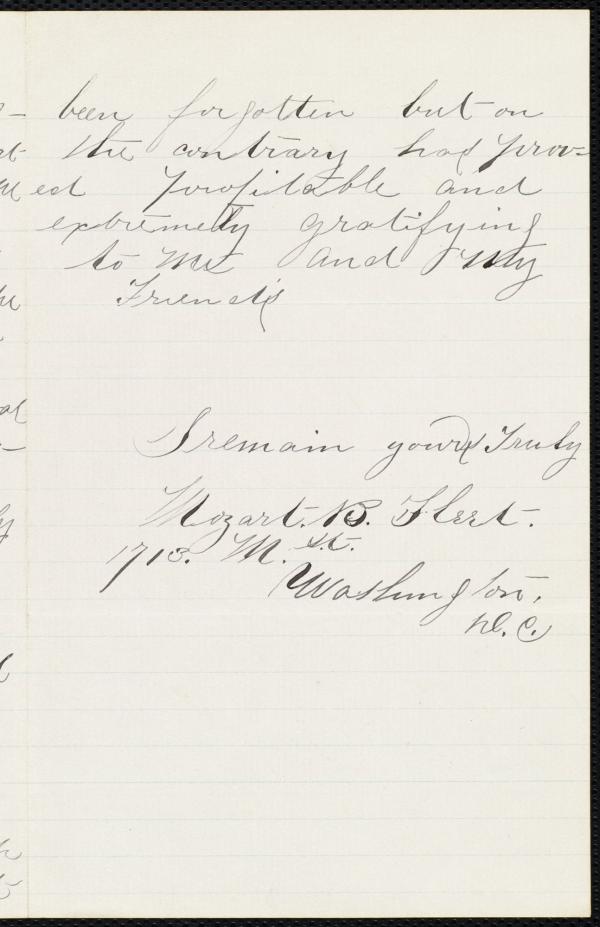 been forgotten but on
the contrary has prov-
ed profitable and
extremely gratifying
to me and my
Friends
I remain yours Truly
Mozart. B.
1713. M. St.
Washington,
D.C.